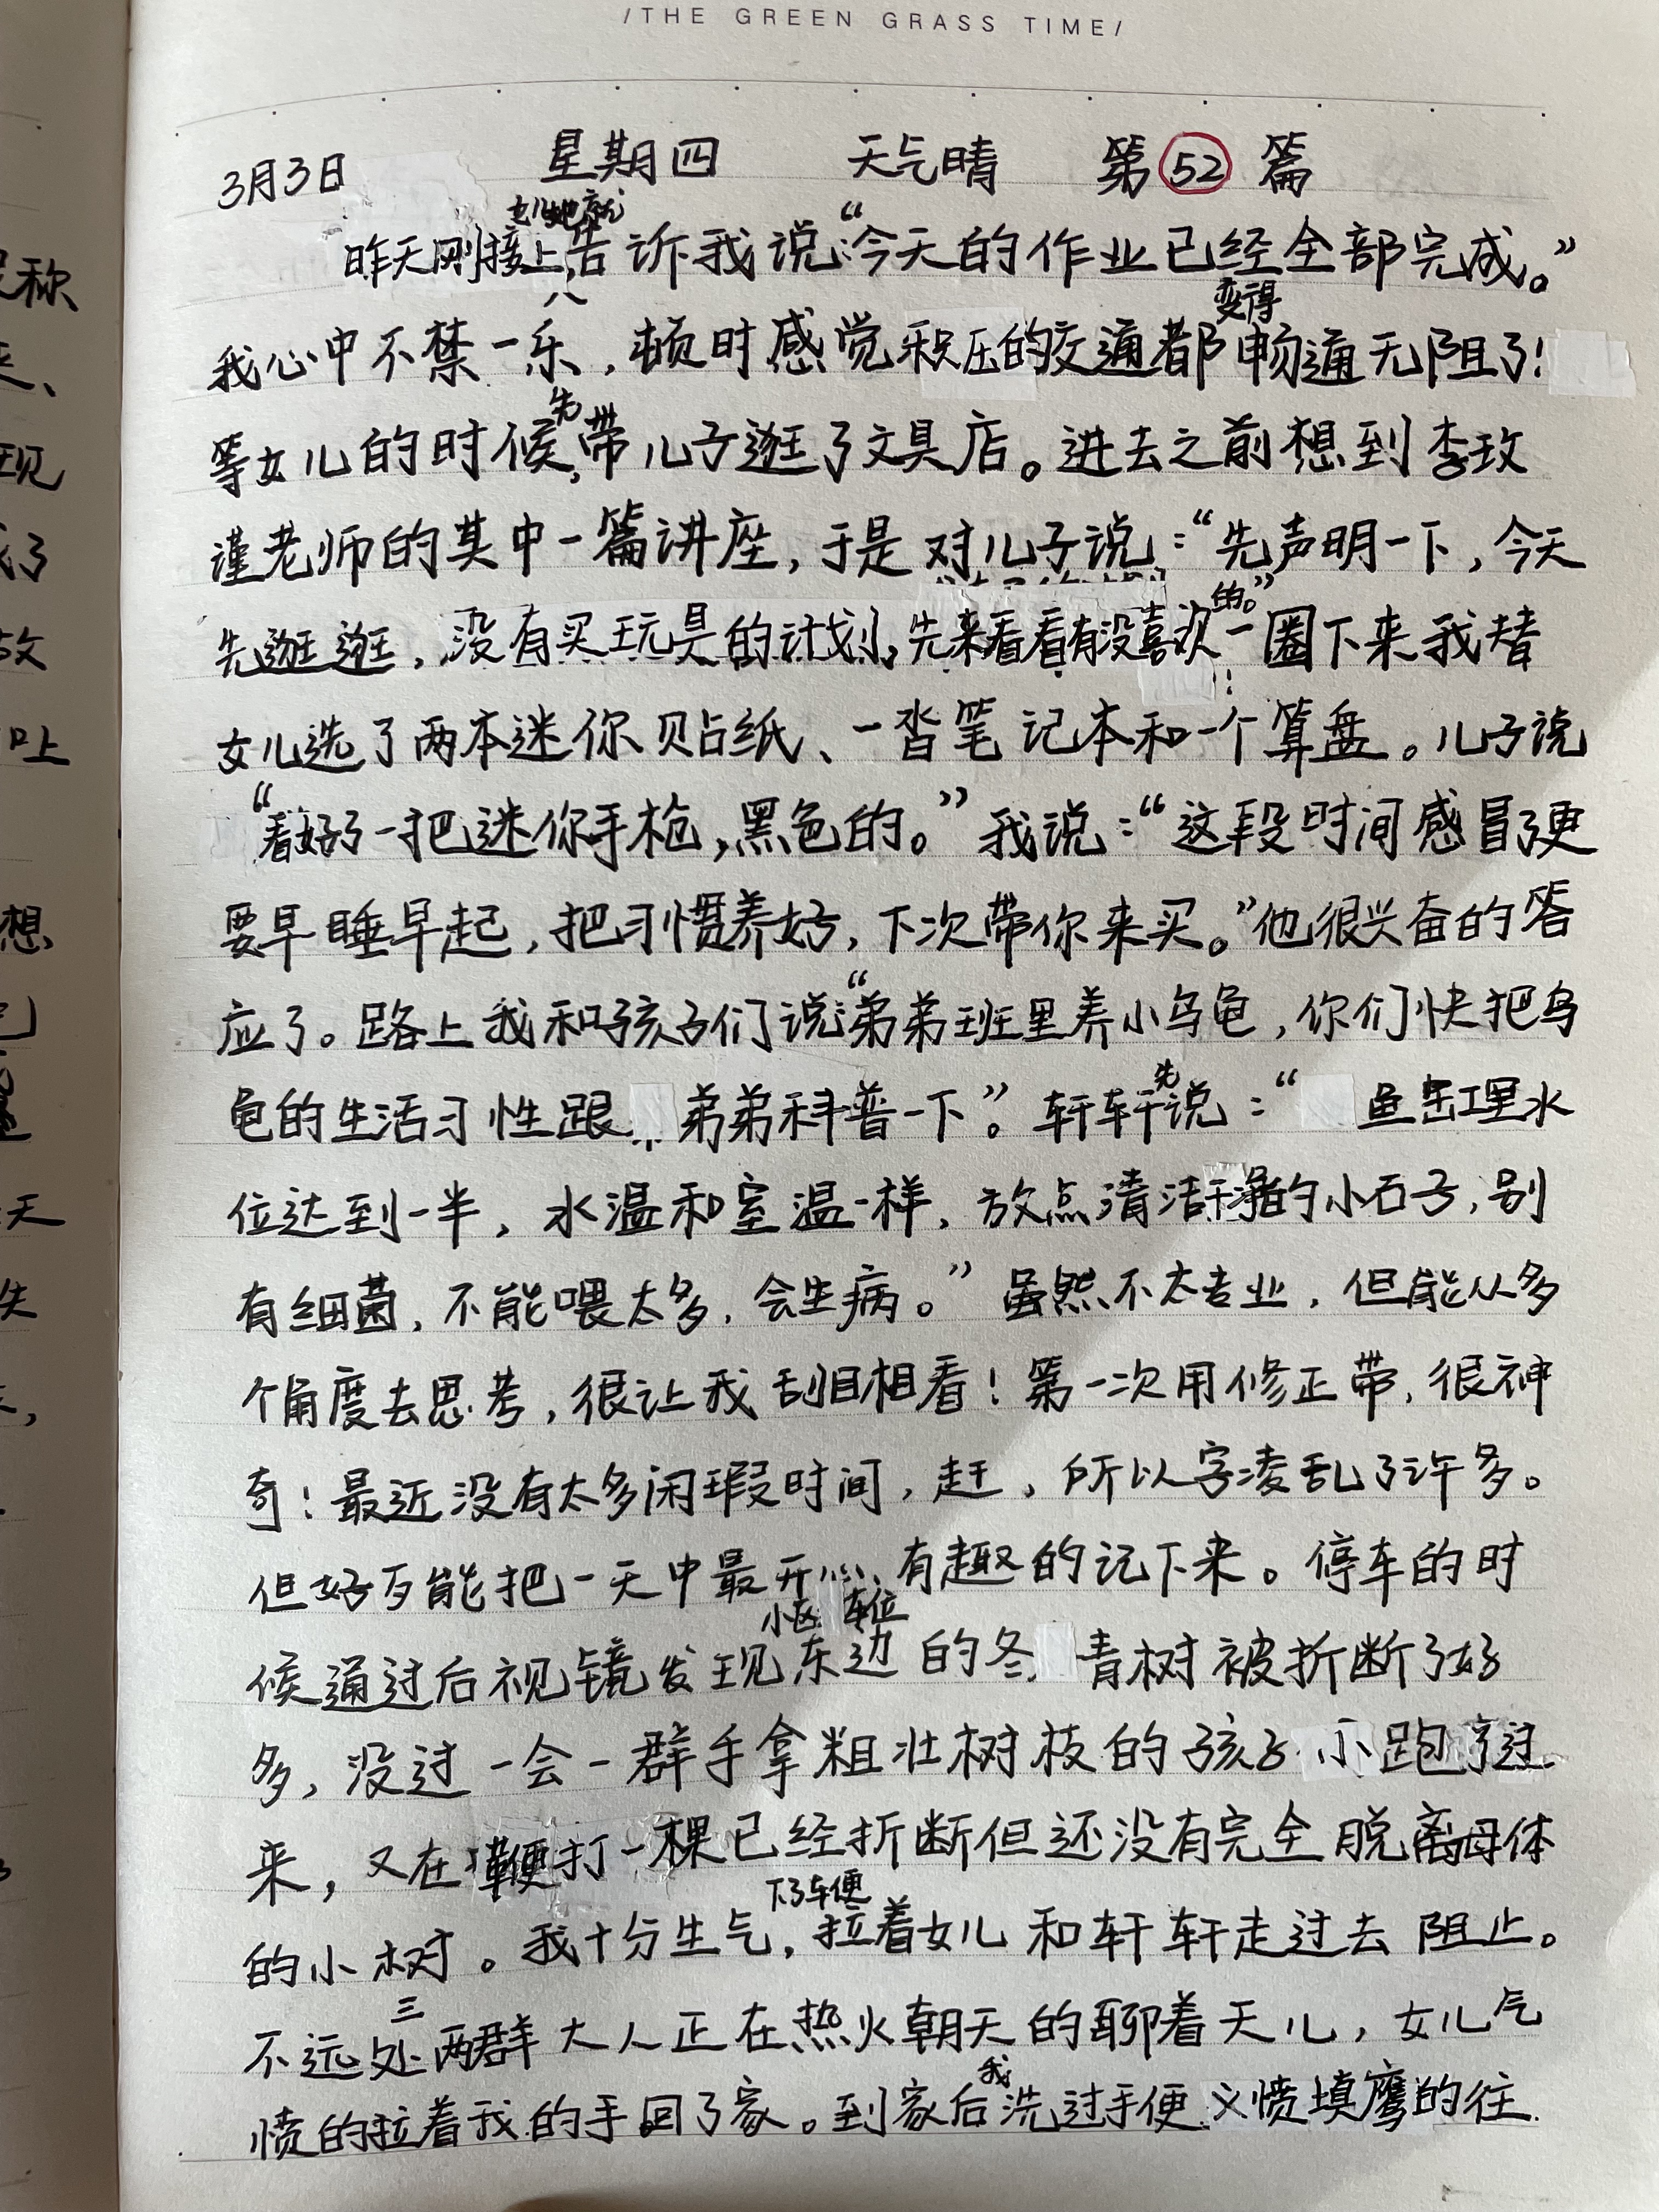 /THE GREEN GRASS TIME/
3月3日 星期四 天气晴 第52篇
昨天刚接上,女儿她就告诉我说:“今天的作业已经全部完成。”
我心中不禁一乐,顿时感觉积压的交通都变得畅通无阻了!
等女儿的时候,先带儿子逛了文具店。进去之前想到李玫
谨老师的其中一篇讲座,于是对儿子说:“先声明一下,今天
先逛逛,没有买玩具的计划,先来看看有没喜欢的。”一圈下来我替
女儿选了两本迷你贴纸、一沓笔记本和一个算盘。儿子说
“看好了一把迷你手枪,黑色的。”我说:“这段时间感冒了更
要早睡早起,把习惯养好,下次带你来买。”他很兴奋的答
应了。路上我和孩子们说:“弟弟班里养小乌龟,你们快把乌
龟的生活习性跟弟弟科普一下”。轩轩先说:“鱼缸里水
位达到一半,水温和室温一样,放点清洁干净的小石子,别
有细菌,不能喂太多,会生病。”虽然不太专业,但能从多
个角度去思考,很让我刮目相看!第一次用修正带,很神
奇!最近没有太多闲瑕时间,赶,所以字凌乱了许多。
但好歹能把一天中最开心、有趣的记下来。停车的时
候通过后视镜发现小区车位东边的冬青树被折断了好
多,没过一会一群手拿粗壮树枝的孩子小跑了过
来,又在鞭打一棵已经折断但还没有完全脱离母体
的小树。我十分生气,下了车便拉着女儿和轩轩走过去阻止。
不远处三两群大人正在热火朝天的聊着天儿,女儿气
愤的拉着我的手回了家。到家后我洗过手便义愤填鹰的往